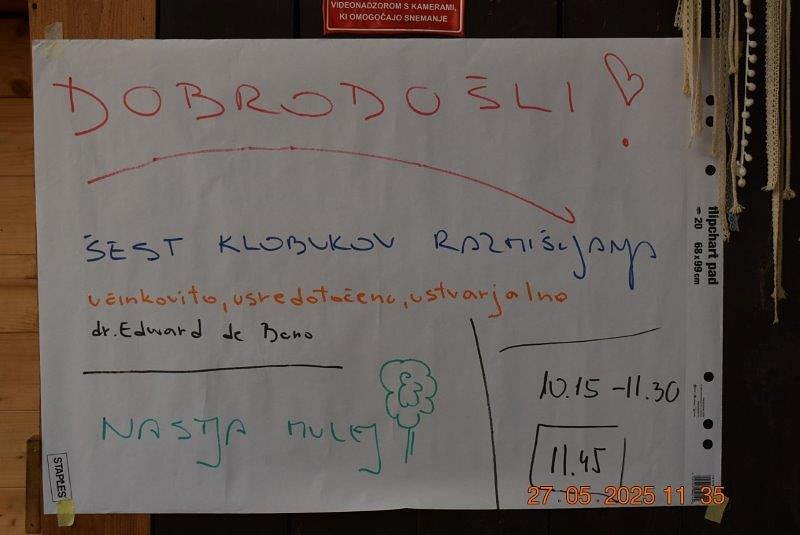 VIDEONADZOROM S KAMERAMI,
KI OMOGOČAJO SNEMANJE
DOBRODOŠLI!
flipchart pad
20 68x99cm
ŠEST KLOBUKOV RAZMIŠLJANJA
učinkovito, usredotočeno, ustvarjalno
dr. Edward de Bono
10.15 - 11.30
NASTJA MULEJ
11.45
STAPLES
27.05.2025 11:35